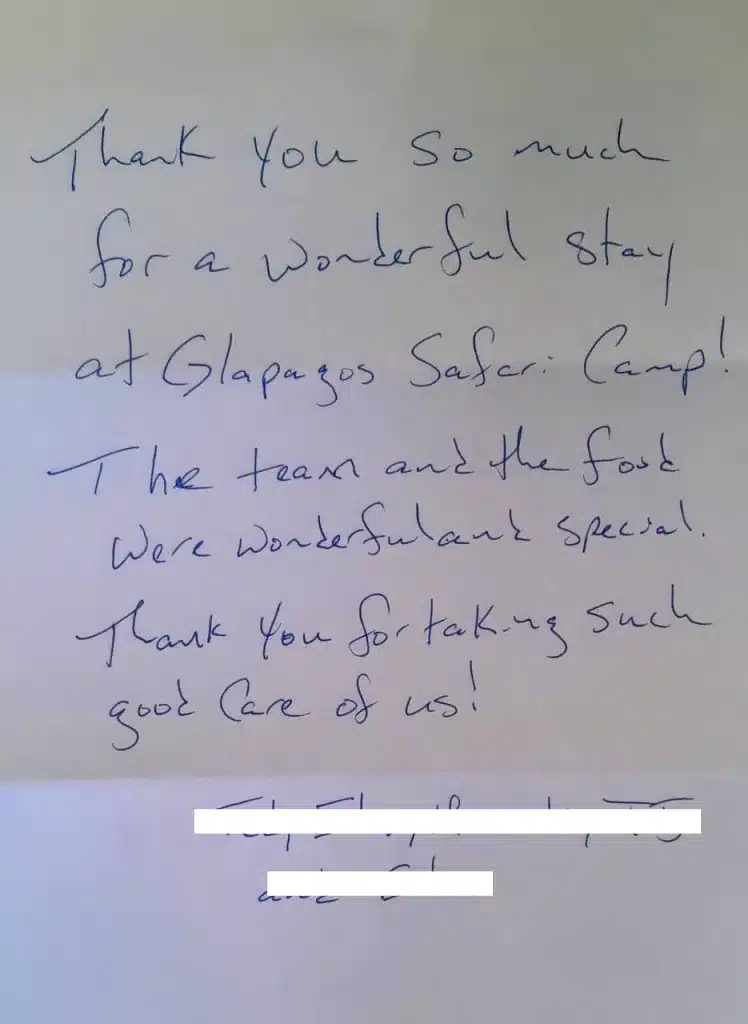 Thank you so much
for a wonderful stay
at Glapagos Safari Camp!
The team and the food
were wonderful and special.
Thank you for taking such
good care of us!
and